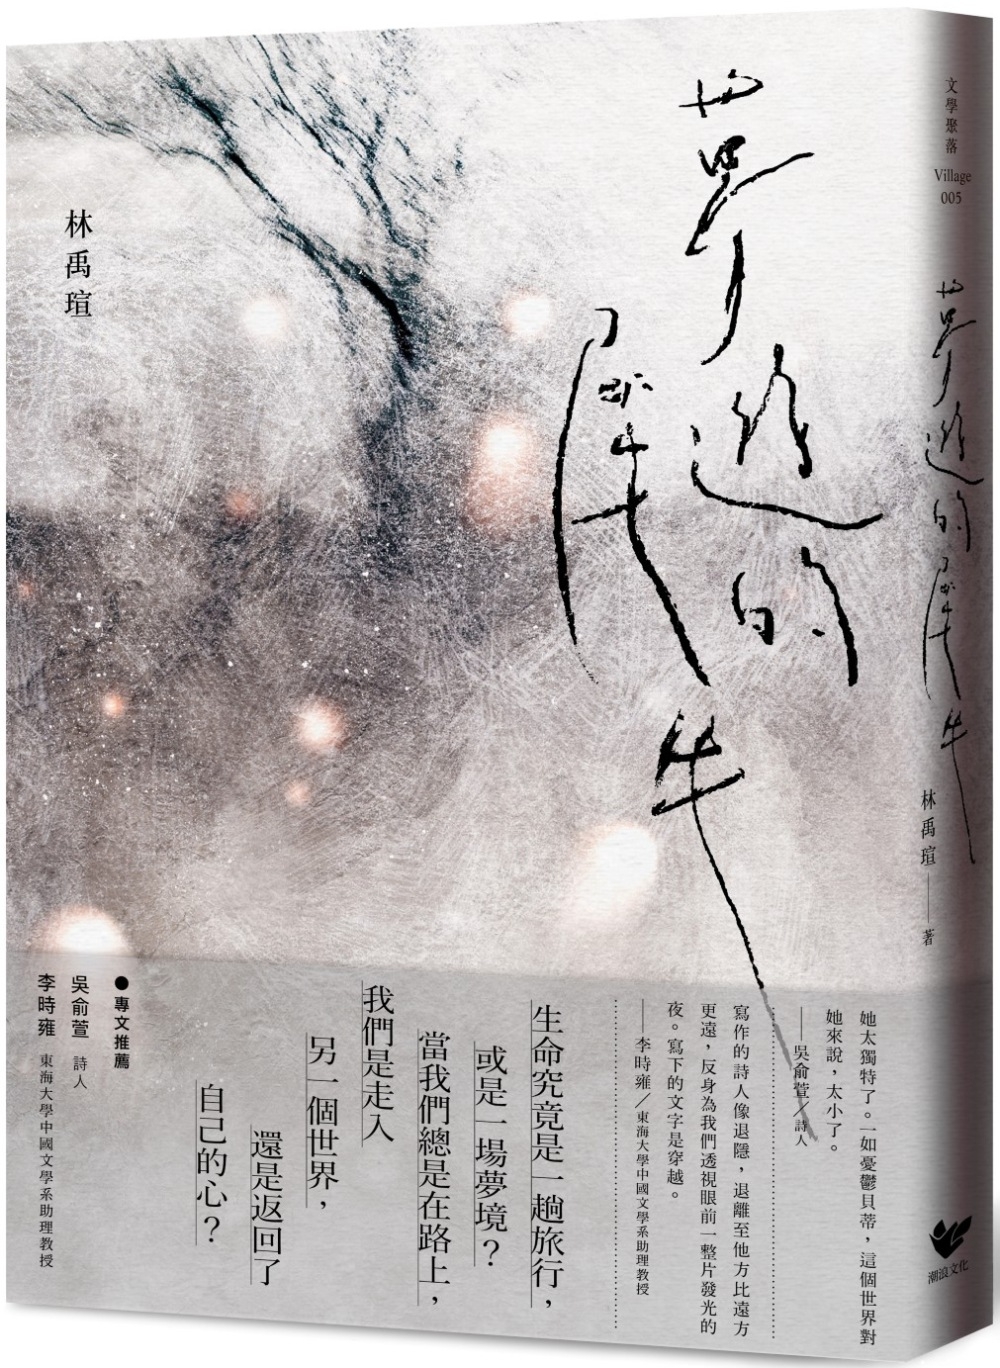 夢遊的犀牛
林禹瑄
她太獨特了。一如憂鬱貝蒂，這個世界對
她來說，太小了。
——吳俞萱／詩人
寫作的詩人像退隱，退離至他方比遠方
更遠，反身為我們透視眼前一整片發光的
夜。寫下的文字是穿越。
——李時雍／東海大學中國文學系助理教授
生命究竟是一趟旅行，
或是一場夢境？
當我們總是在路上，
我們是走入
另一個世界，
還是返回了
自己的心？
●專文推薦
吳俞萱 詩人
李時雍 東海大學中國文學系助理教授
文學聚落
Village
005
夢遊的犀牛
林禹瑄——著
潮浪文化